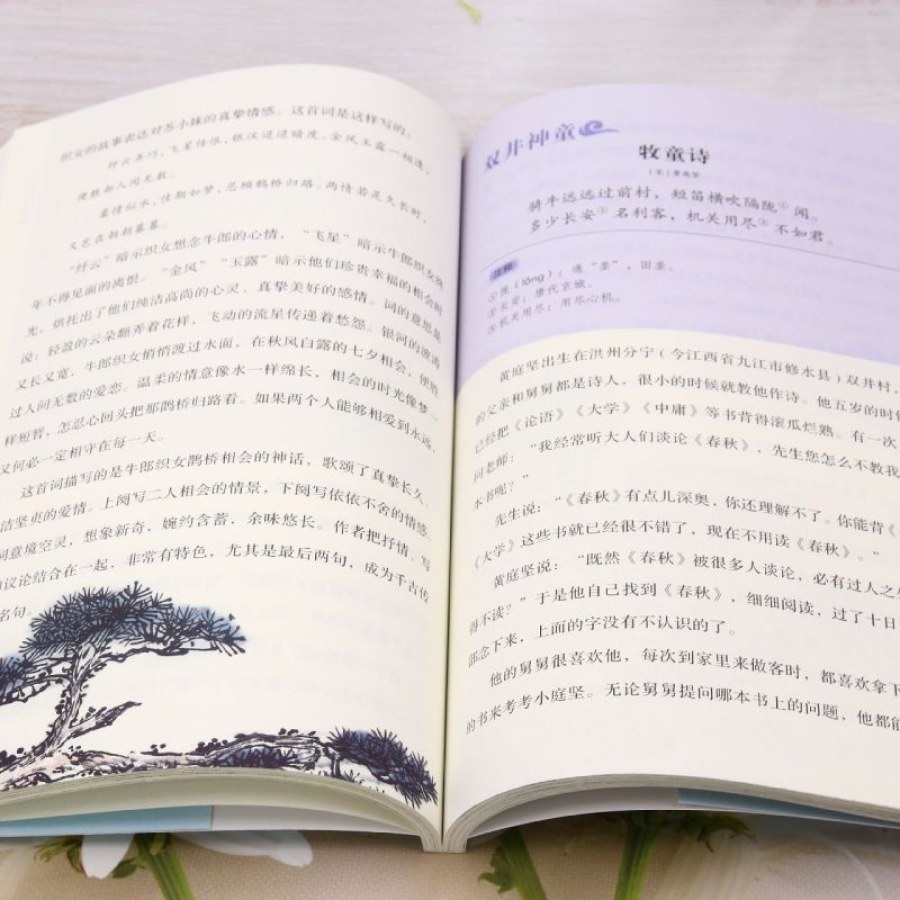 织女的故事表达对苏小妹的真挚情感。这首词是这样写的：
纤云弄巧，飞星传恨，银汉迢迢暗度。金风玉露一相逢，
便胜却人间无数。
柔情似水，佳期如梦，忍顾鹊桥归路。两情若是久长时，
又岂在朝朝暮暮。
“纤云”暗示织女想念牛郎的心情，“飞星”暗示牛郎织女终
年不得见面的离恨。“金风”“玉露”暗示他们珍贵幸福的相会时
光，烘托出了他们纯洁高尚的心灵、真挚美好的感情。词的意思是
说：轻盈的云朵翻弄着花样，飞动的流星传递着愁怨。银河的波涛
又长又宽，牛郎织女悄悄渡过水面，在秋风白露的七夕相会，便胜
过人间无数的爱恋。温柔的情意像水一样绵长，相会的时光像梦一
样短暂，怎忍心回头把那鹊桥归路看。如果两个人能够相爱到永远，
又何必一定相守在每一天。
这首词描写的是牛郎织女鹊桥相会的神话，歌颂了真挚长久、
洁坚贞的爱情。上阕写二人相会的情景，下阕写依依不舍的情感，
词意境空灵，想象新奇，婉约含蓄，余味悠长。作者把抒情、写
和议论结合在一起，非常有特色，尤其是最后两句，成为千古传
名句。
双井神童
牧童诗
［宋］黄庭坚
骑牛远远过前村，短笛横吹隔陇①闻。
多少长安②名利客，机关用尽③不如君。
注释
①陇（lǒng）：通“垄”，田垄。
②长安：唐代京城。
③机关用尽：用尽心机。
黄庭坚出生在洪州分宁（今江西省九江市修水县）双井村，
的父亲和舅舅都是诗人，很小的时候就教他作诗。他五岁的时候
已经把《论语》《大学》《中庸》等书背得滚瓜烂熟。有一次
问老师：“我经常听大人们谈论《春秋》，先生您怎么不教我
本书呢？”
先生说：“《春秋》有点儿深奥，你还理解不了。你能背《
《大学》这些书就已经很不错了，现在不用读《春秋》。”
黄庭坚说：“既然《春秋》被很多人谈论，必有过人之
得不读？”于是他自己找到《春秋》，细细阅读，过了十日
部念下来，上面的字没有不认识的了。
他的舅舅很喜欢他，每次到家里来做客时，都喜欢拿下
的书来考考小庭坚。无论舅舅提问哪本书上的问题，他都能